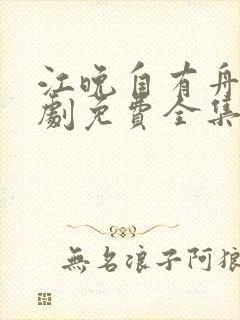 江晚自有舟
劇免費全集
無名浪子阿狼